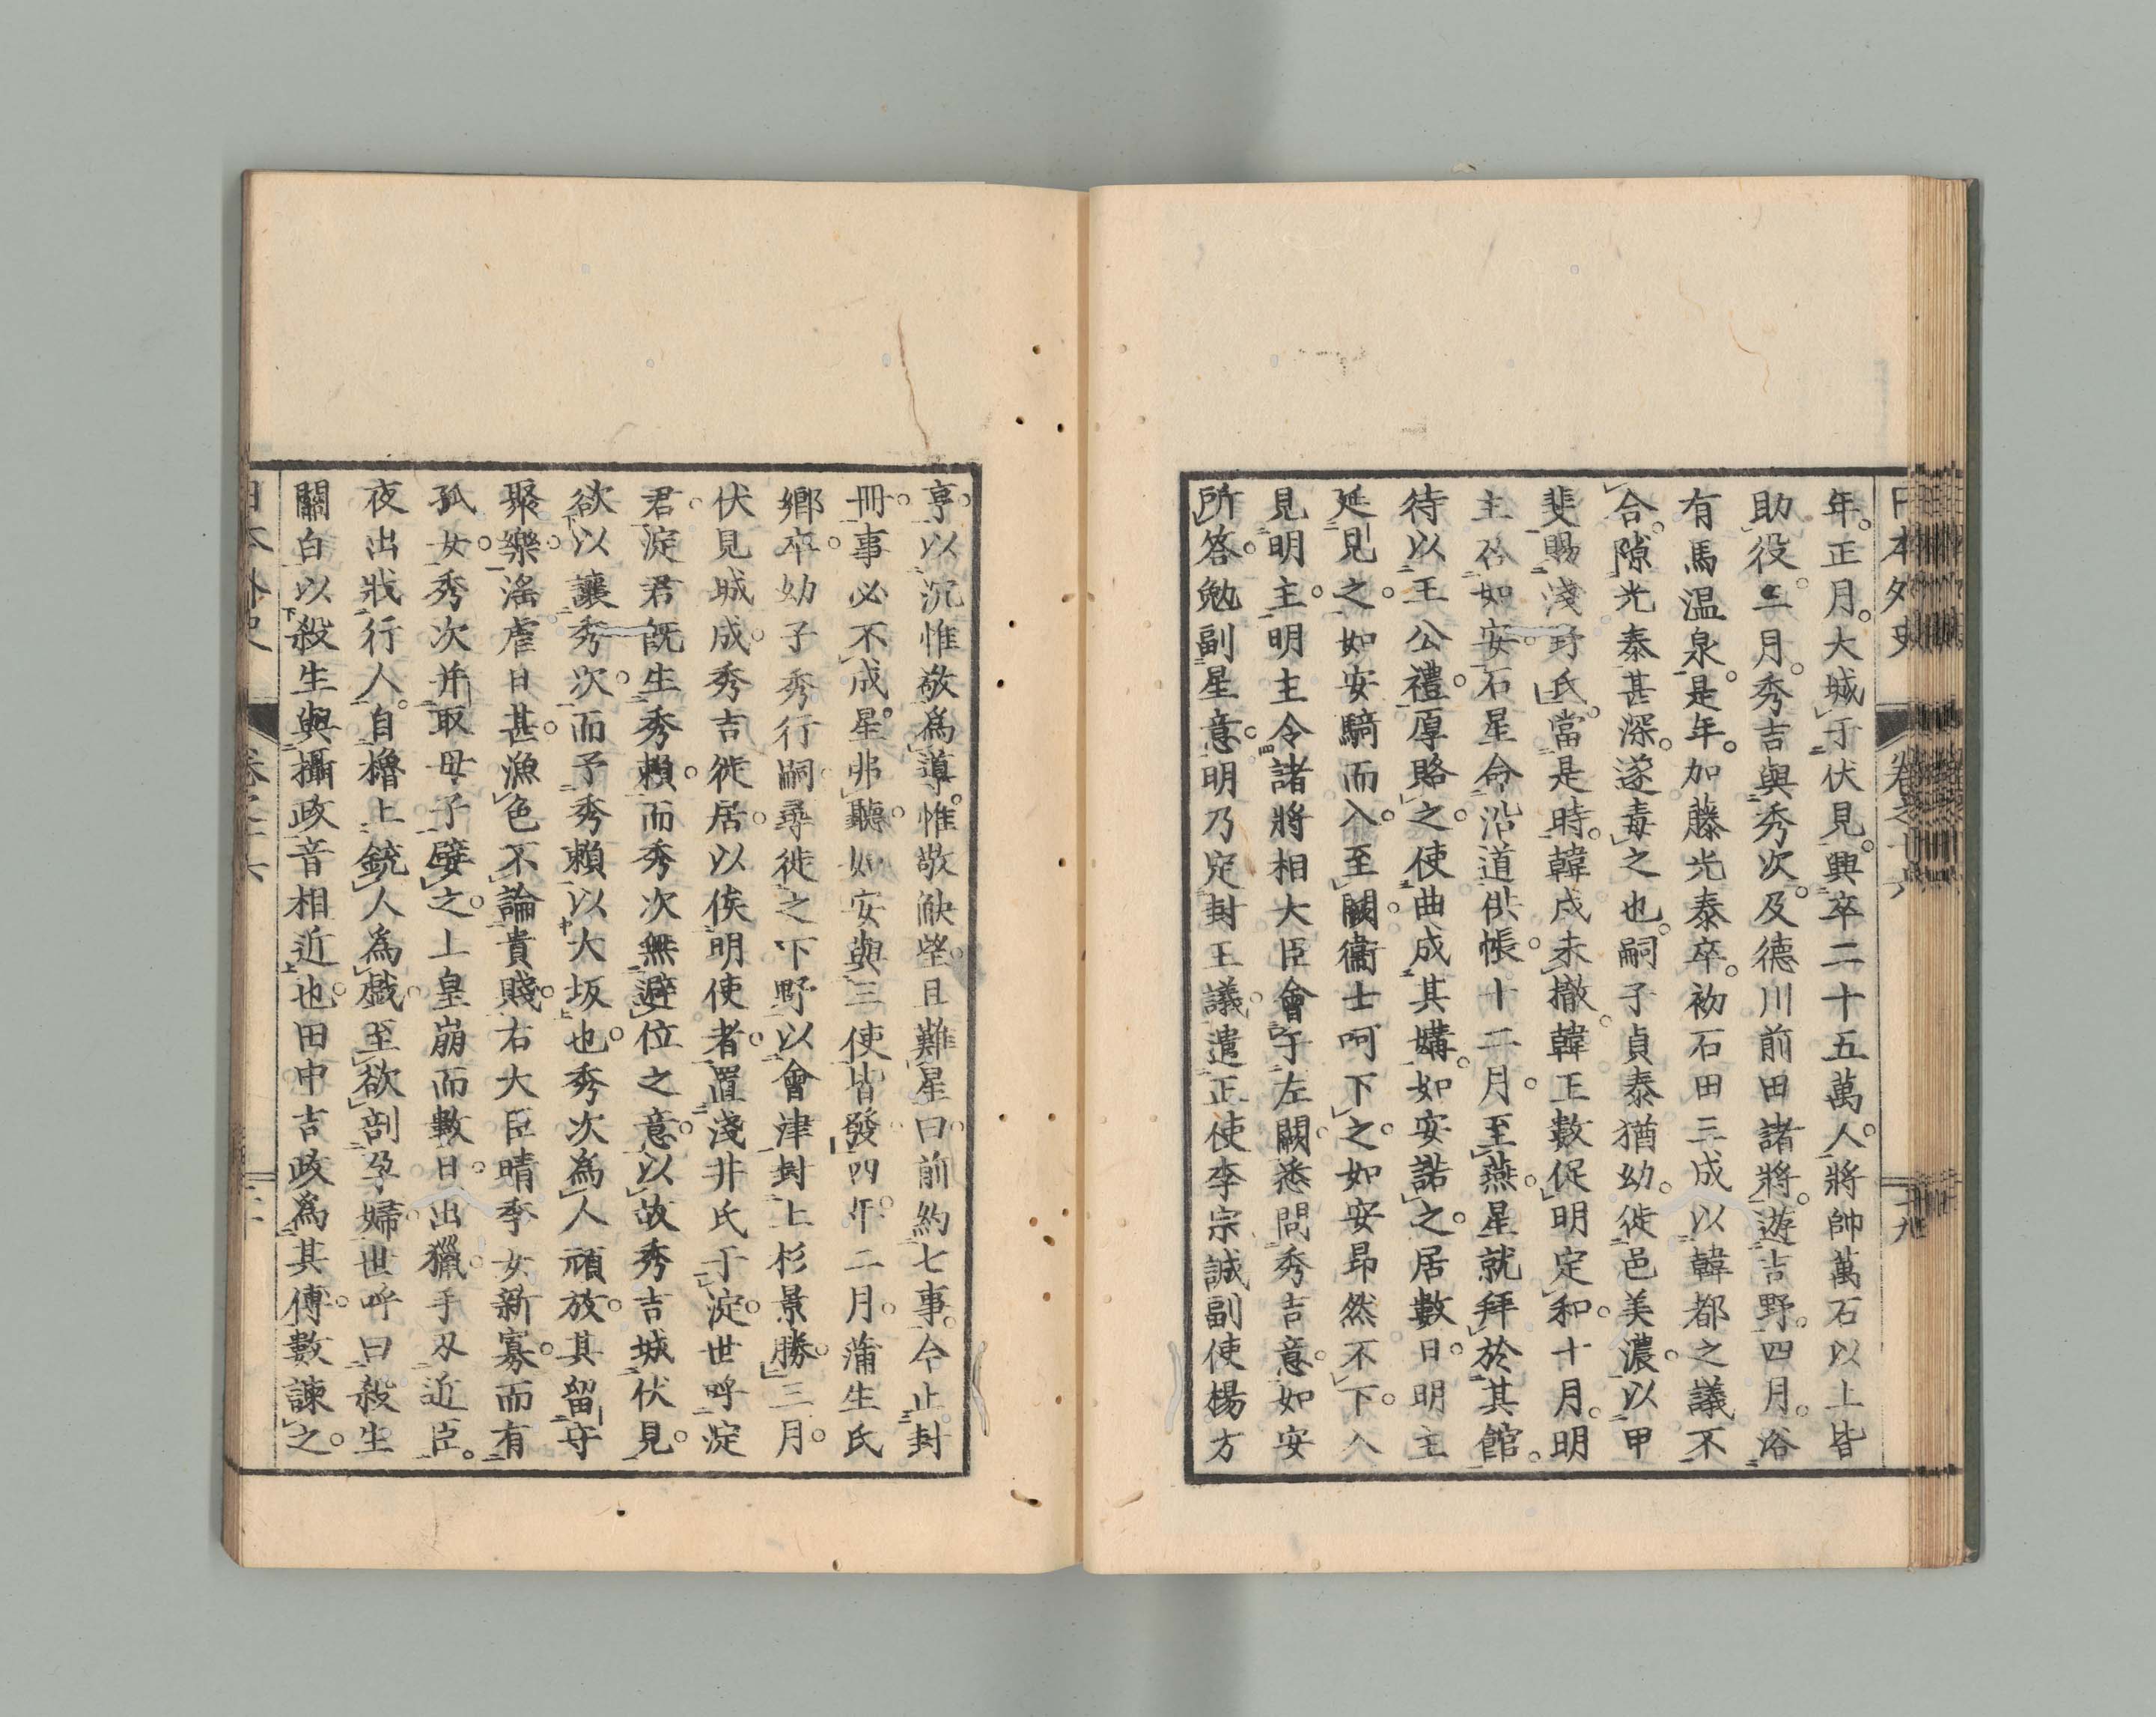 日本外史 卷之十六 二十九
年。正月。大城于伏見。興卒二十五萬人。將帥萬石以上皆
助役。二月。秀吉與秀次。及德川前田諸將。遊吉野。四月。浴
有馬温泉。是年。加藤光泰卒。初石田三成以韓都之議不
合。隙光泰甚深。遂毒之也。嗣子貞泰猶幼。徙邑美濃。以甲
斐賜淺野氏。當是時。韓戍未撤。韓王數促明定和。十月。明
主召如安。石星命沿道供帳。十二月。至燕。星就拜於其館。
待以王公禮。厚賂之。使曲成其媾。如安諾之。居數日。明主
延見之。如安騎而入。至闕。衞士呵下之。如安昻然不下。入
見明主。明主令諸將相大臣會于左闕。悉問秀吉意。如安
所答。勉副星意。明乃定封王議。遣正使李宗誠副使楊方
亨。以沉惟敬為導。惟敬觖望。且難星曰。前約七事。今止封
冊。事必不成。星弗聽。如安與三使皆發。四年。二月。蒲生氏
鄕卒。幼子秀行嗣。尋徙之下野。以會津封上杉景勝。三月。
伏見城成。秀吉徙居。以俟明使者。置淺井氏于淀。世呼淀
君。淀君旣生秀賴。而秀次無避位之意。以故秀吉城伏見。
欲以讓秀次。而予秀賴以大坂也。秀次為人頑放。其留守
聚樂。滛虐日甚。漁色不論貴賤。右大臣晴季女新寡。而有
孤女。秀次并取母子嬖之。上皇崩而數日。出獵。手刄近臣。
夜出戕行人。自櫓上銃人為戲。至欲剖孕婦。世呼曰殺生
關白。以殺生與攝政音相近也。田中吉政為其傅。數諫之。